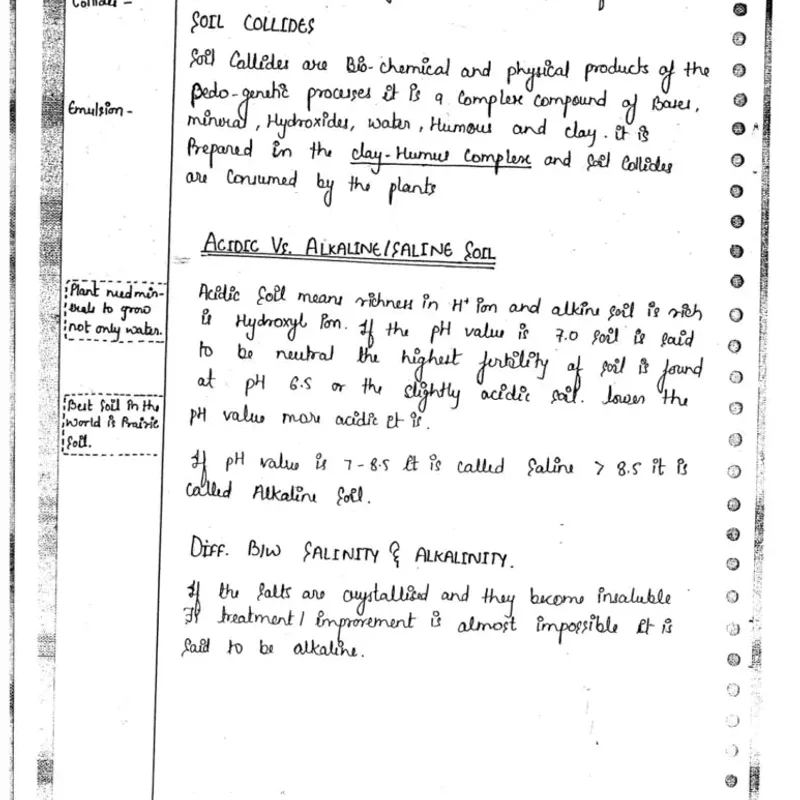 SOIL COLLIDES
Soil Collides are Bio-chemical and physical products of the
Pedo-genetic processes it is a Complex Compound of Bases,
Emulsion -
mineral, Hydroxides, water, Humous and clay. it is
Prepared in the clay-Humus Complex and Soil Collides
are Consumed by the plants
ACIDIC Vs. ALKALINE/SALINE SOIL
Plant need min-
erals to grow
not only water.
Acidic Soil means richness in H+ ion and alkine soil is rich
is Hydroxyl ion. If the pH value is 7.0 soil is said
to be neutral the highest fertility of soil is found
at pH 6.5 or the slightly acidic soil. lower the
pH value more acidic it is.
Best Soil in the
World is Prairie
Soil.
If pH value is 7-8.5 it is called Saline > 8.5 it is
called Alkaline Soil.
DIFF. B/W SALINITY & ALKALINITY.
If the salts are crystallied and they become insaluble
If treatment/improvement is almost impossible it is
Said to be alkaline.